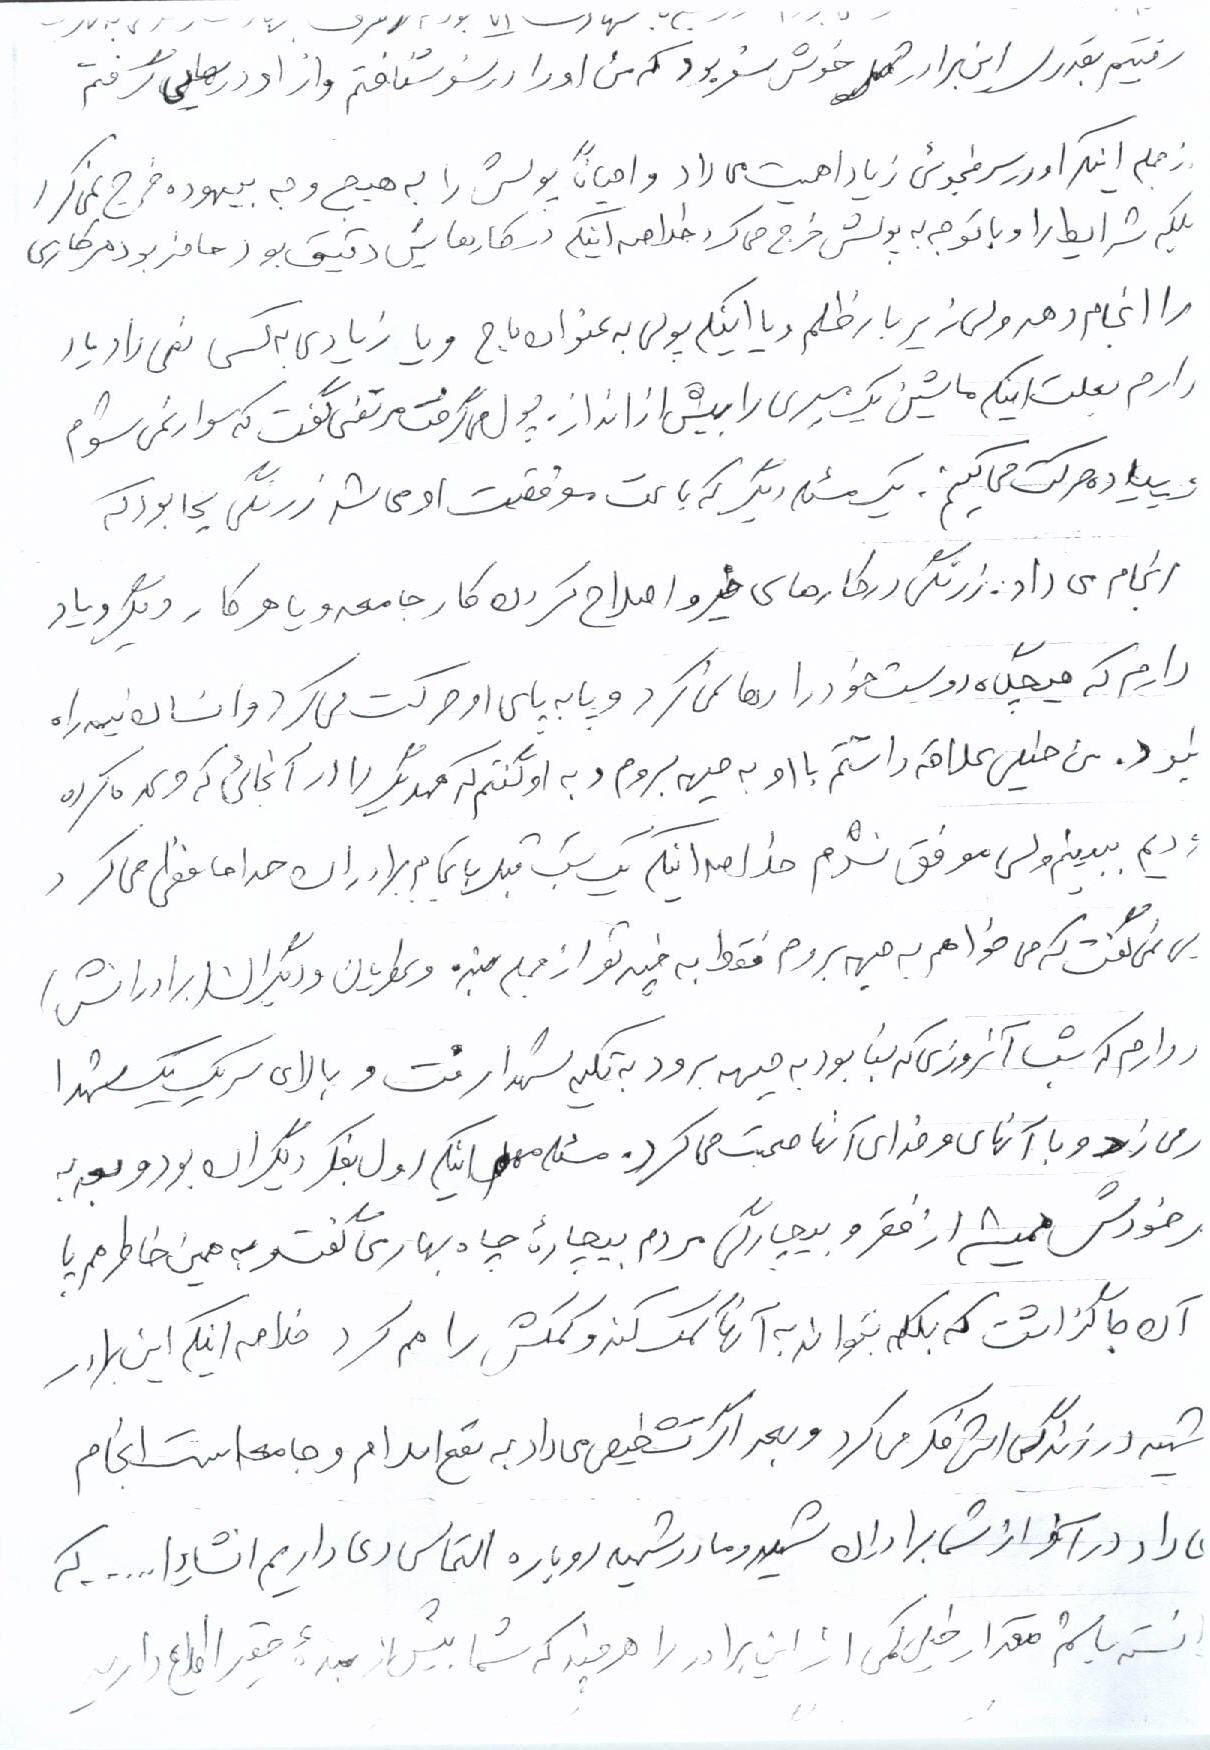 رفتیم بقدری این برادر شهید خوش سفر بود که من او را در سفر شناختم و از او درسهایی گرفتم
از جمله اینکه او در صرفه‌جوئی زیاد اهمیت می داد و احیاناً پولش را به هیچ وجه بیهوده خرج نمی کرد
بلکه شرایط را و با توجه به پولش خرج می کرد خلاصه اینکه در کارهایش دقیق بود حاضر بود هر کاری
را انجام دهد ولی زیر بار ظلم و یا اینکه پولی به عنوان باج و یا زیادی به کسی نمی داد یاد
دارم بعلت اینکه ماشین یک مسیری را بیش از اندازه پول می گرفت مرتضی گفت که سوار نمی شوم
و پیاده حرکت می کنیم. یک مسئله دیگر که باعث موفقیت او می شد زرنگی بجا بود که
انجام می داد: زرنگی در کارهای خیر و اصلاح کردن کار جامعه و یا هر کار دیگر و یاد
دارم که هیچگاه دوست خود را رها نمی کرد و پا به پای او حرکت می کرد و انسان نیمه راه
نبود. من خیلی علاقه داشتم با او به جبهه بروم و به او گفتم که همدیگر را در آنجائی که وعده کرده
بودیم ببینیم ولی موفق نشدم خلاصه اینکه یک شب قبل با تمام برادران خداحافظی می کرد
ولی نمی گفت که می خواهم به جبهه بروم فقط به چند نفر از جمله بنده و عطریان و دیگران (برادرانش)
یاد دارم که شب آنروزی که بنا بود به جبهه برود به تکیه شهدا رفت و بالای سر یک یک شهدا
می زد و با آنها و خدای آنها صحبت می کرد. مسئله مهم اینکه اول بفکر دیگران بود و بعد به
فکر خودش همیشه از فقر و بیچارگی مردم بیچارهٔ چاه بهار می گفت و به همین خاطر هم پا
آن جا گذاشت که بلکه بتواند به آنها کمک کند و کمکش را هم کرد خلاصه اینکه این برادر
شهید در زندگی اش فکر می کرد و بعد اگر تشخیص می داد به نفع اسلام و جامعه است انجام
می داد در آخر از شما برادران شهید و مادر شهید دوباره التماس دعا داریم انشاءا..... که
توانسته باشم مقدار خیلی کمی از این برادر را هر چند که شما بیش از بندهٔ حقیر اطلاع دارید